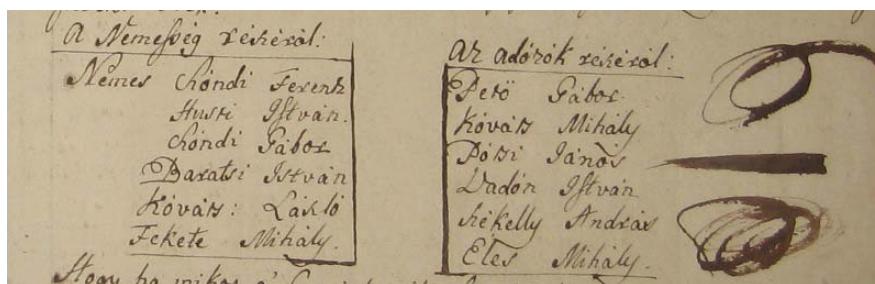 A Nemesség részéről:
Nemes Chóndi Ferentz
Husti István.
Chóndi Gábor
Baratsi István
Kováts: László
Fekete Mihály.
Az adózók részéről:
Pető Gábor.
Kováts Mihály
Pótsi János
Vadón István
Székelly András
Éles Mihály.
Hogy ha mikor a'